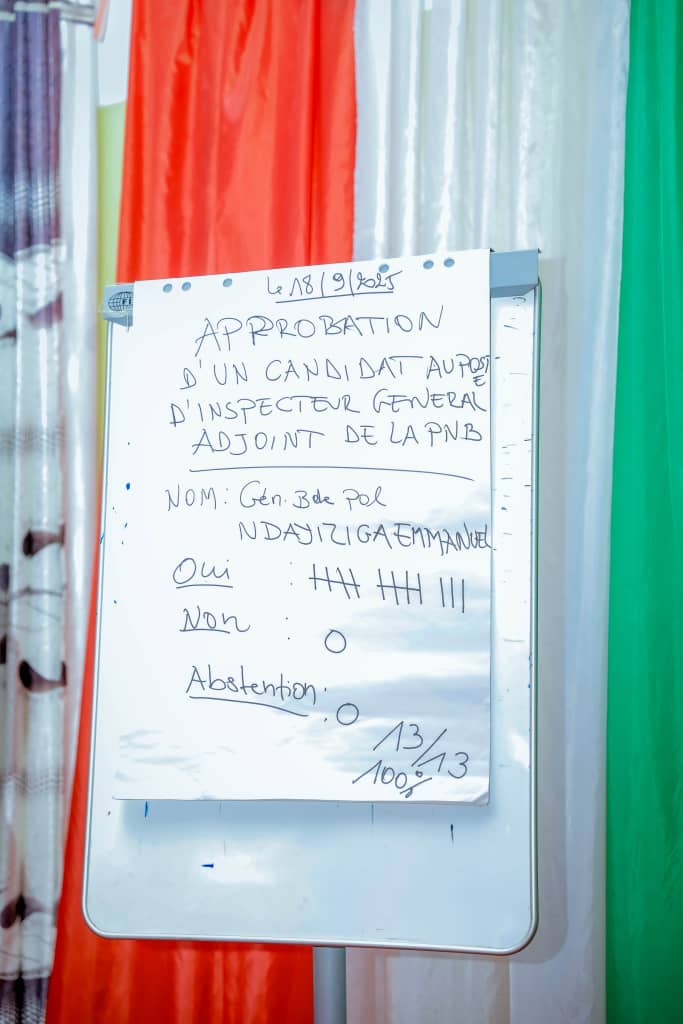 Le 18/9/2025
APPROBATION
D'UN CANDIDAT AU POSTE
D'INSPECTEUR GENERAL
ADJOINT DE LA PNB
NOM: Gén. Bde Pol
NDAYIZIGA EMMANUEL
Oui :
Non : 0
Abstention : 0
13/13
100%